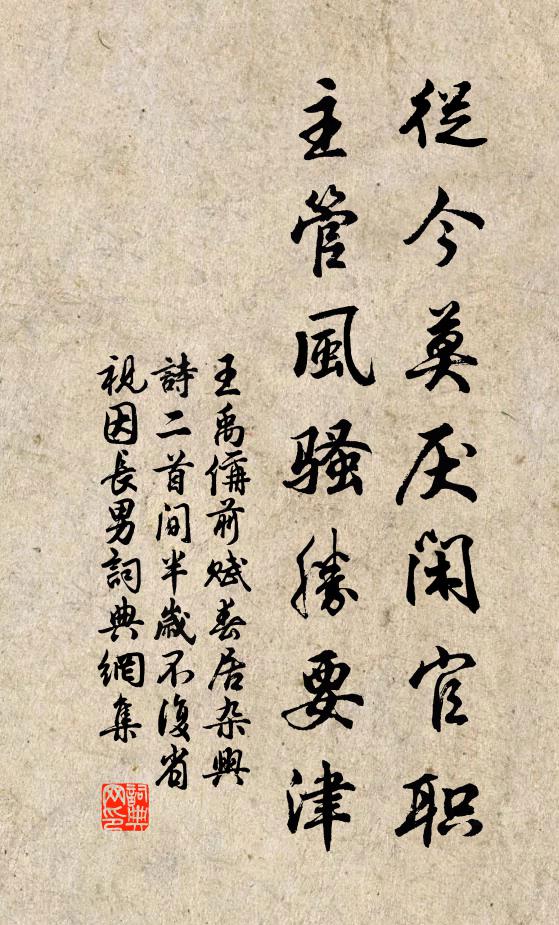 從今莫厌閑官职
主管風騷勝要津
王禹偁前赋春居杂興
詩二首间半歲不復省
視因長男詞典網集
詞典网印